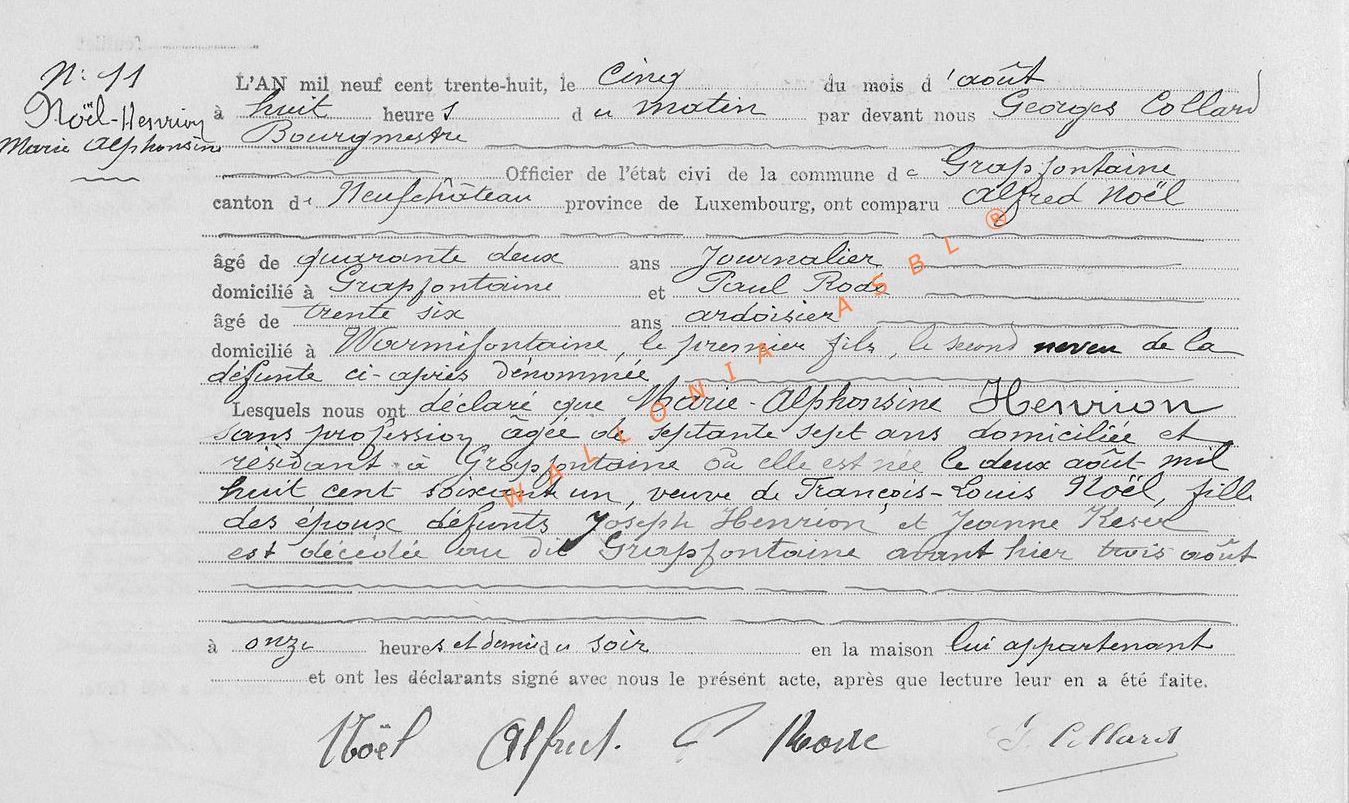 N: 11
Noël-Henrion
Marie Alphonsine
L'AN mil neuf cent trente-huit, le cinq du mois d'août
à huit heures du matin par devant nous Georges Collard
Bourgmestre
Officier de l'état civi de la commune de Grapfontaine
canton de Neufchâteau province de Luxembourg, ont comparu Alfred Noël
âgé de quarante deux ans Journalier
domicilié à Grapfontaine et Paul Rode
âgé de trente six ans ardoisier
domicilié à Warmifontaine, le premier fils, le second neveu de la
défunte ci-après dénommée
Lesquels nous ont déclaré que Marie-Alphonsine Henrion
sans profession âgée de septante sept ans domiciliée et
résidant à Grapfontaine où elle est née le deux août mil
huit cent soixante un, veuve de François-Louis Noël, fille
des époux défunts Joseph Henrion et Jeanne Keser
est décédée au dit Grapfontaine avant hier trois août
à onze heures et demie du soir en la maison lui appartenant
et ont les déclarants signé avec nous le présent acte, après que lecture leur en a été faite.
Noël Alfred. P G. Collard
WALLONIA ASBL ®